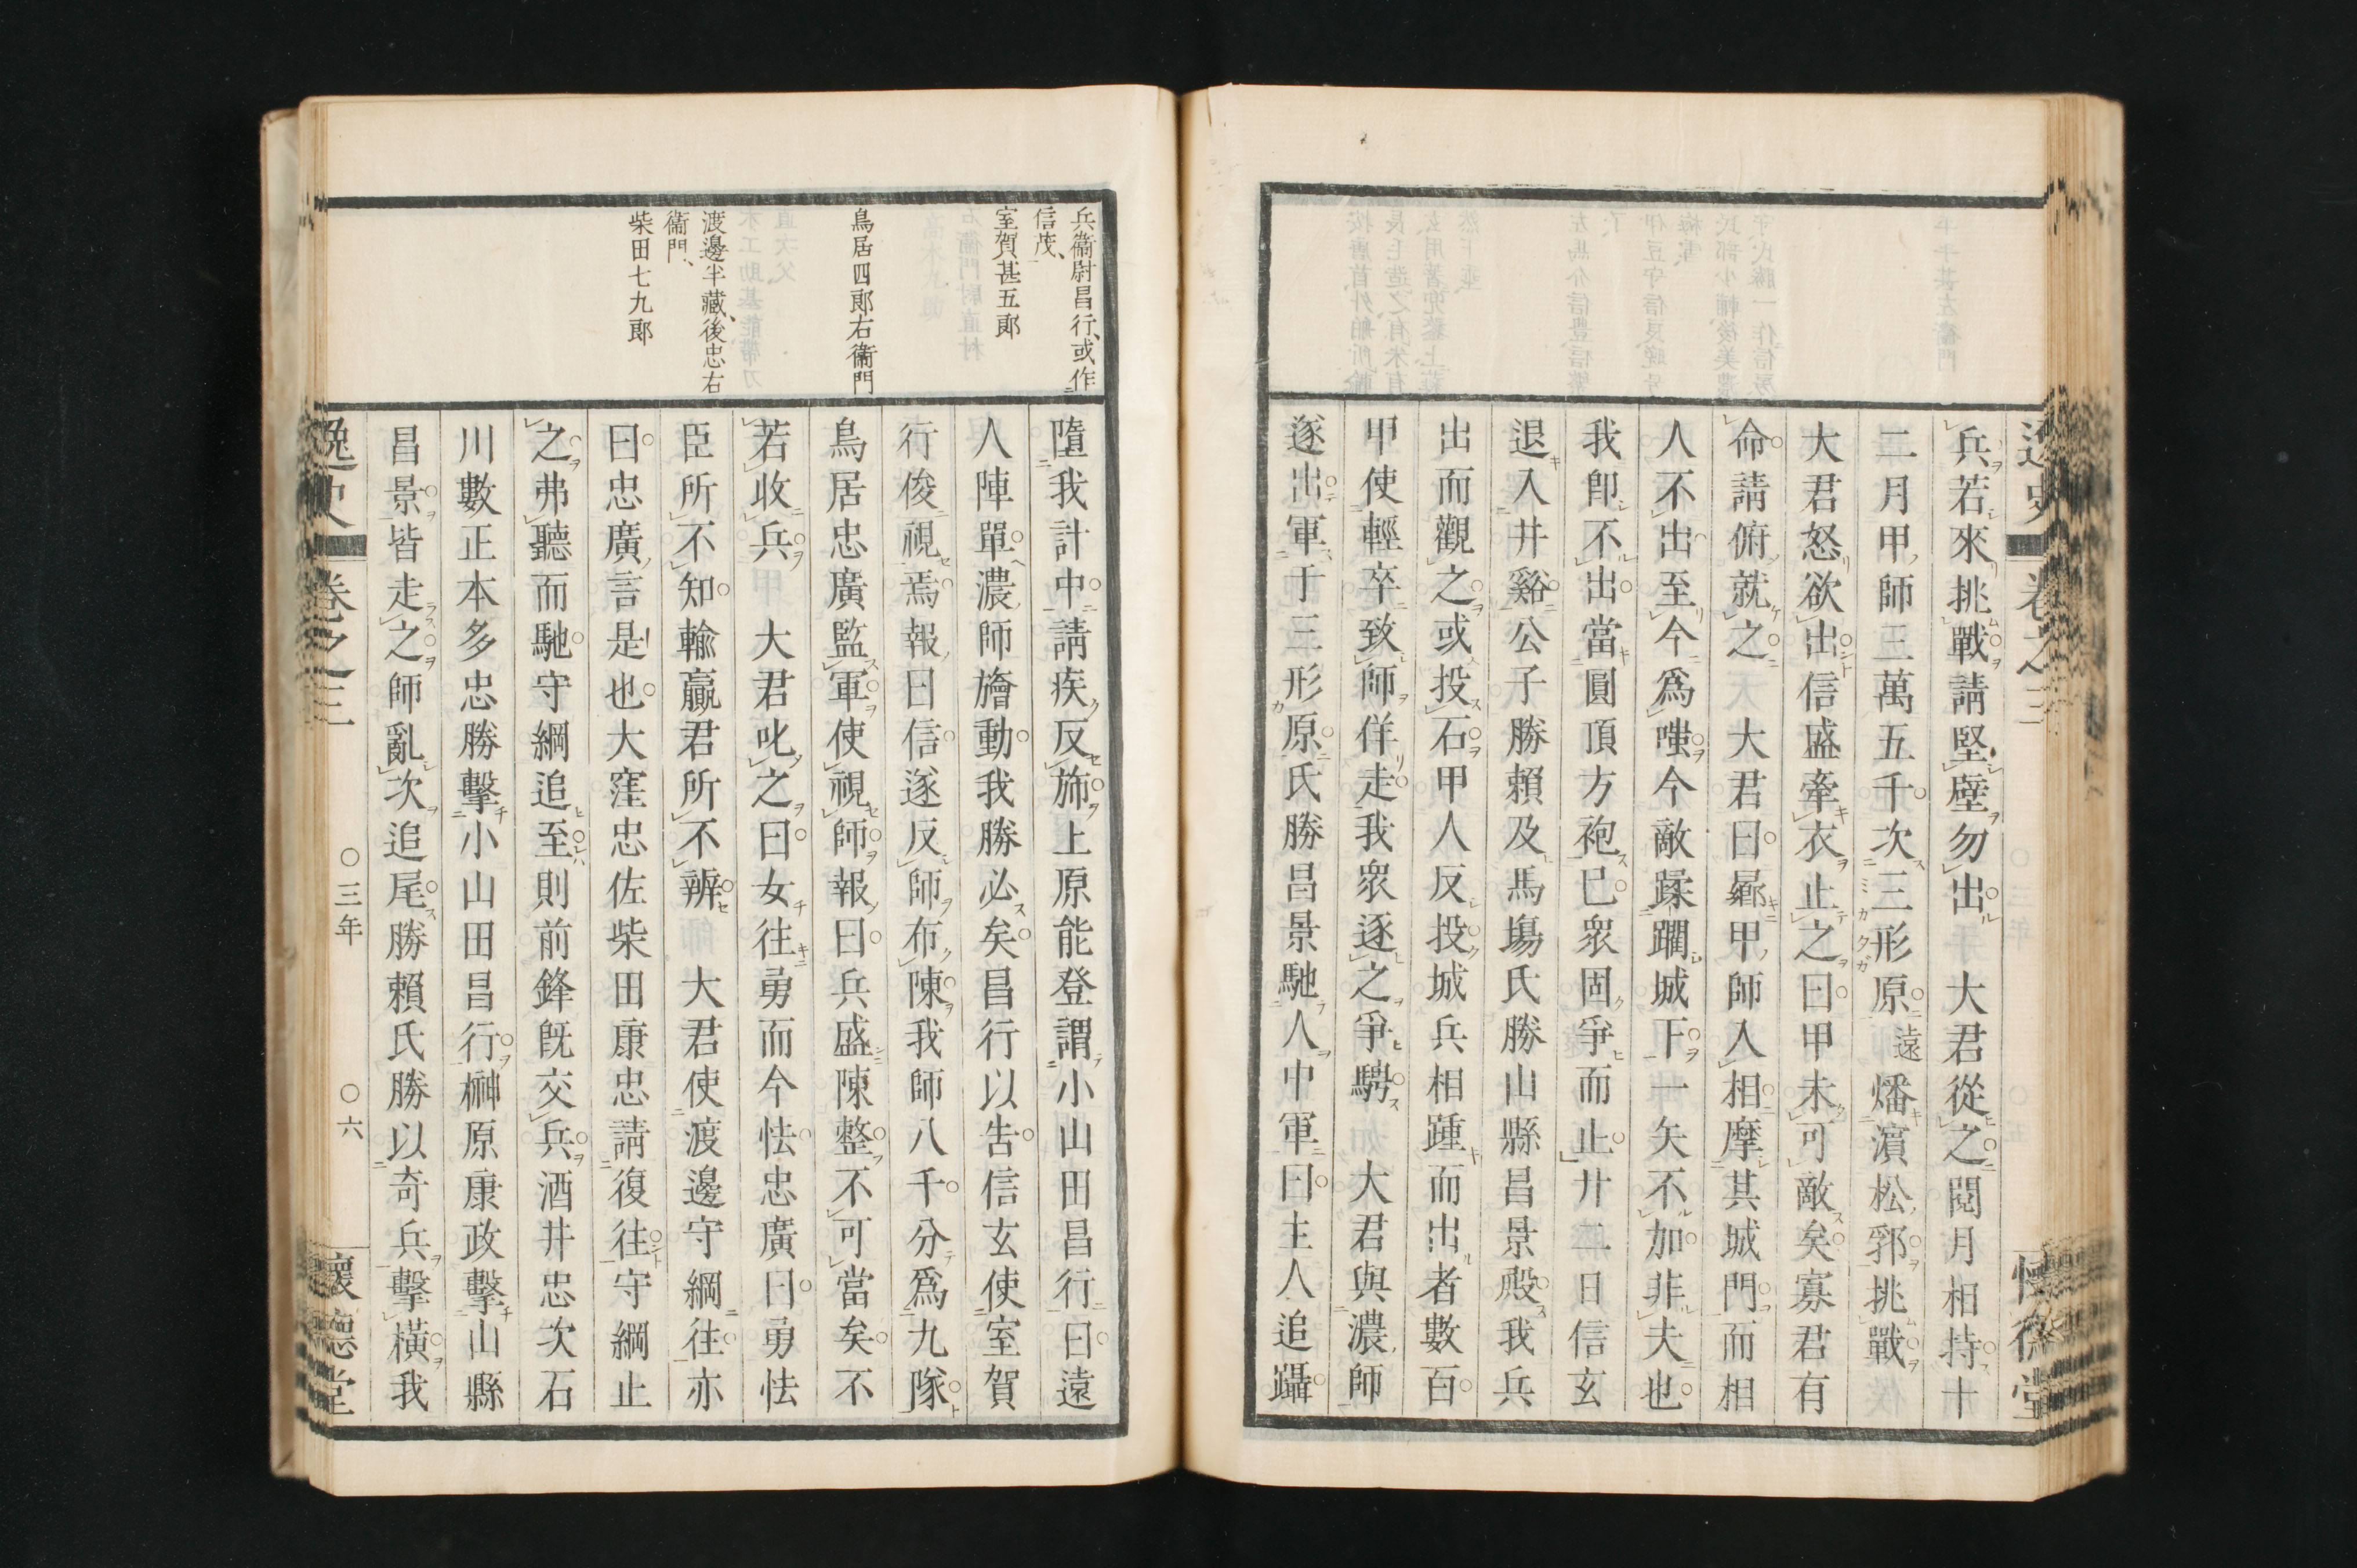 兵若來挑戰請堅壁勿出　大君從之閱月相持十
二月甲師三萬五千次三形原遠燔濵松郛挑戰
大君怒欲出信盛牽衣止之曰甲未可敵矣寡君有
命請俯就之　大君曰㬥甲師入相摩其城門而相
人不出至今爲嗤今敵蹂躙城下一矢不加非夫也
我卽不出當圓頂方袍已衆固爭而止廿二日信玄
退入井谿公子勝賴及馬塲氏勝山縣昌景殿我兵
出而觀之或投石甲人反投城兵相踵而出者數百
甲使輕卒致師佯走我衆逐之爭騁　大君與濃師
遂出軍于三形原氏勝昌景馳人中軍曰主人追躡
兵衞尉昌行、或作
信茂、
室賀甚五郞
鳥居四郞右衞門
渡邊半藏、後忠右
衞門、
柴田七九郞
墮我計中請疾反斾上原能登謂小山田昌行曰遠
人陣單濃師旝動我勝必矣昌行以吿信玄使室賀
行俊視焉報曰信遂反師布陳我師八千分爲九隊
鳥居忠廣監軍使視師報曰兵盛陳整不可當矣不
若收兵　大君叱之曰女往勇而今怯忠廣曰勇怯
臣所不知輸贏君所不辨　大君使渡邊守綱往亦
曰忠廣言是也大窪忠佐柴田康忠請復往守綱止
之弗聽而馳守綱追至則前鋒旣交兵酒井忠次石
川數正本多忠勝擊小山田昌行榊原康政擊山縣
昌景皆走之師亂次追尾勝賴氏勝以奇兵擊橫我
逸史　卷之三　○三年　○六　懷德堂